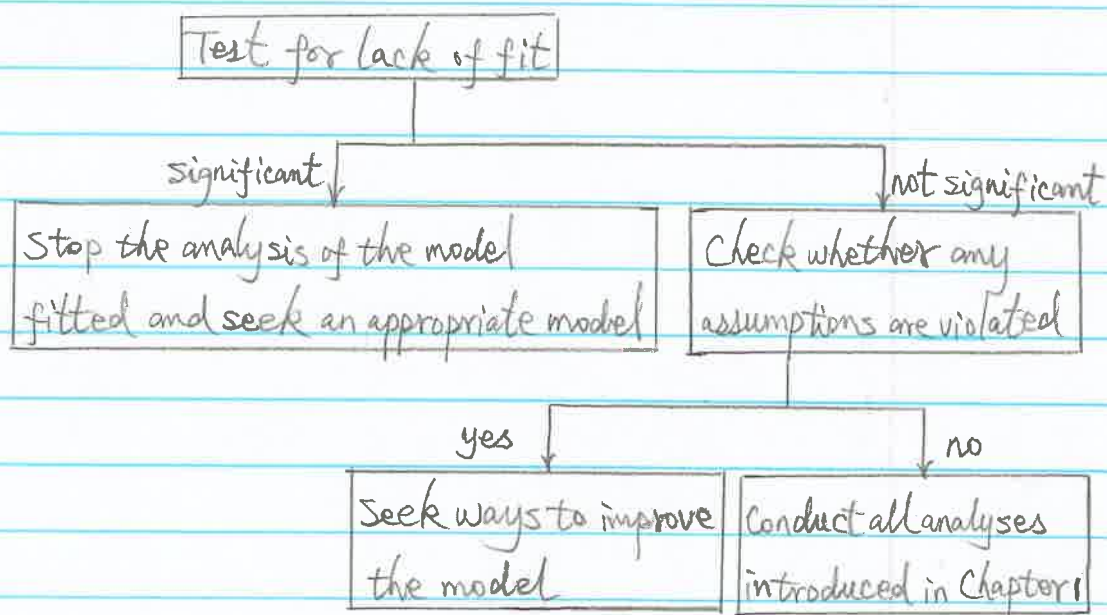 Test for lack of fit
significant
not significant
Stop the analysis of the model
fitted and seek an appropriate model
Check whether any
assumptions are violated
yes
no
Seek ways to improve
the model
Conduct all analyses
introduced in Chapter 1